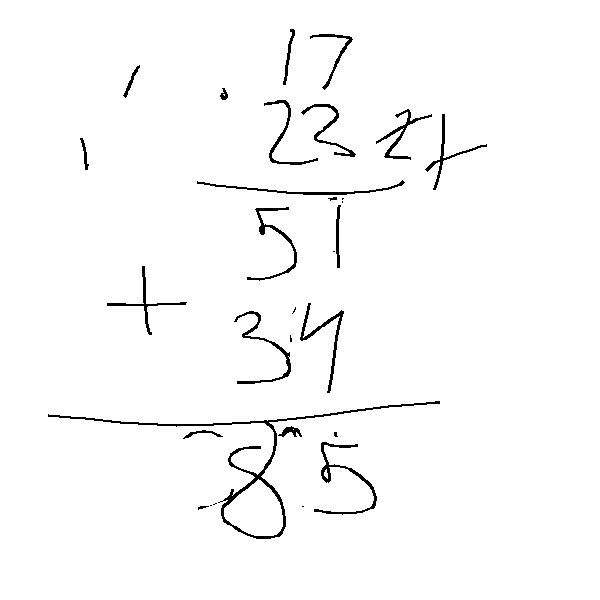 17
· 23 zł
51
+ 34
85